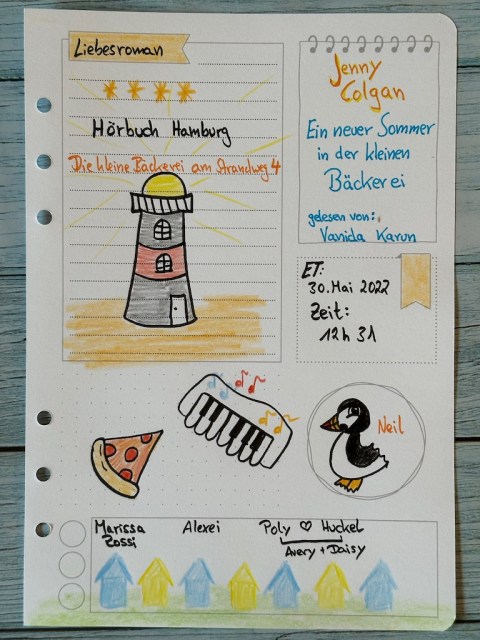 Liebesroman
Hörbuch Hamburg
Die kleine Bäckerei am Strandweg 4
Jenny
Colgan
Ein neuer Sommer
in der kleinen
Bäckerei
gelesen von:
Vanida Karun
ET:
30. Mai 2022
Zeit:
12h 31
Neil
Marissa
Rossi
Alexei
Poly ♡ Huckel
Avery + Daisy